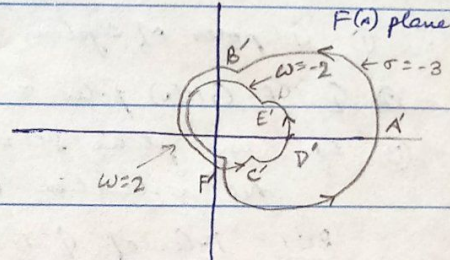 F(s) plane
B'
ω=-2
σ=-3
E'
A'
D'
C'
F'
ω=2